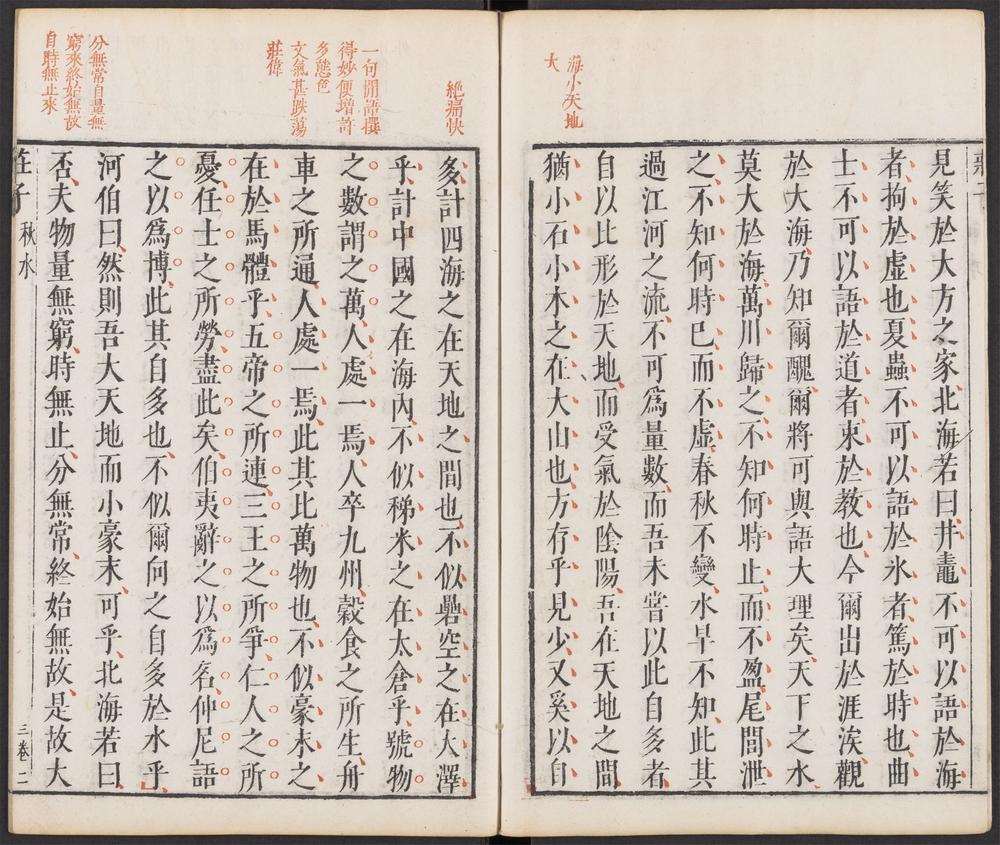 海小天地
大
見笑於大方之家北海若曰井鼃不可以語於海
者拘於虛也夏蟲不可以語於氷者篤於時也曲
士不可以語於道者束於教也今爾出於涯涘觀
於大海乃知爾醜爾將可與語大理矣天下之水
莫大於海萬川歸之不知何時止而不盈尾閭泄
之不知何時已而不虛春秋不變水旱不知此其
過江河之流不可為量數而吾未嘗以此自多者
自以比形於天地而受氣於陰陽吾在天地之間
猶小石小木之在大山也方存乎見少又奚以自
絕痛快
一句閒語撰
得妙便增許
多態色
文氣甚跌蕩
莊偉
分無常自量無
窮來終始無故
自時無止來
多計四海之在天地之間也不似礨空之在大澤
乎計中國之在海內不似稊米之在太倉乎號物
之數謂之萬人處一焉人卒九州穀食之所生舟
車之所通人處一焉此其比萬物也不似豪末之
在於馬體乎五帝之所連三王之所爭仁人之所
憂任士之所勞盡此矣伯夷辭之以為名仲尼語
之以為博此其自多也不似爾向之自多於水乎
河伯曰然則吾大天地而小豪末可乎北海若曰
否夫物量無窮時無止分無常終始無故是故大
莊子 秋水 三卷 二